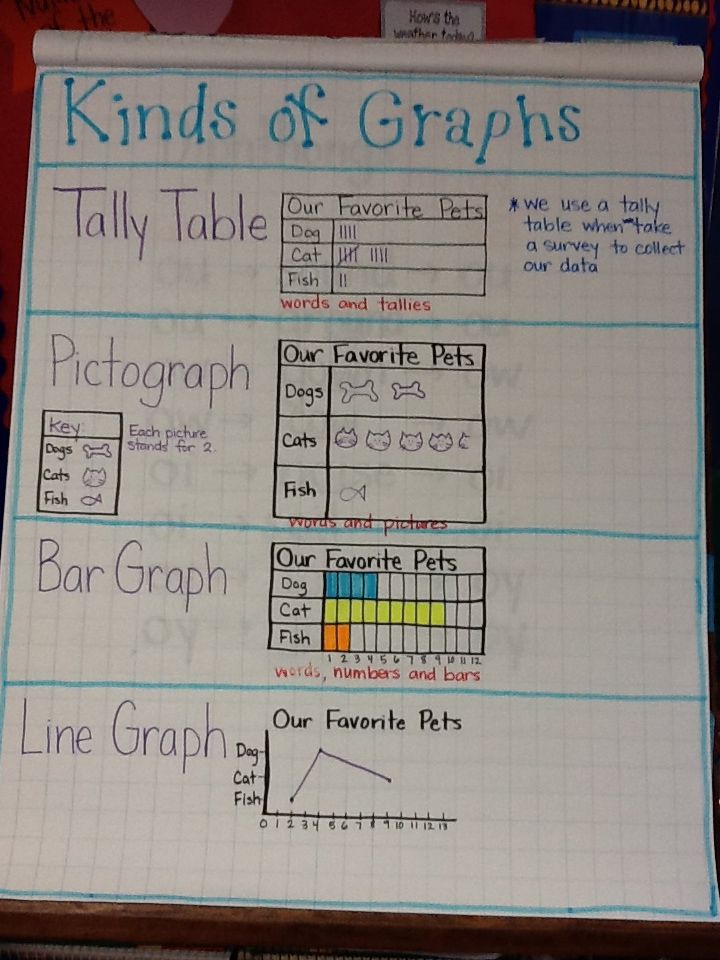 How's the
weather today?
of the
Kinds of Graphs
Tally Table
Our Favorite Pets
Dog
Cat
Fish
words and tallies
* we use a tally
table when take
a survey to collect
our data
Pictograph
Key:
Dogs
Cats
Fish
Each picture
stands for 2.
Our Favorite Pets
Dogs
Cats
Fish
words and pictures
Bar Graph
Our Favorite Pets
Dog
Cat
Fish
1 2 3 4 5 6 7 8 9 10 11 12
words, numbers and bars
Line Graph
Our Favorite Pets
Dog
Cat
Fish
0 1 2 3 4 5 6 7 8 9 10 11 12 13